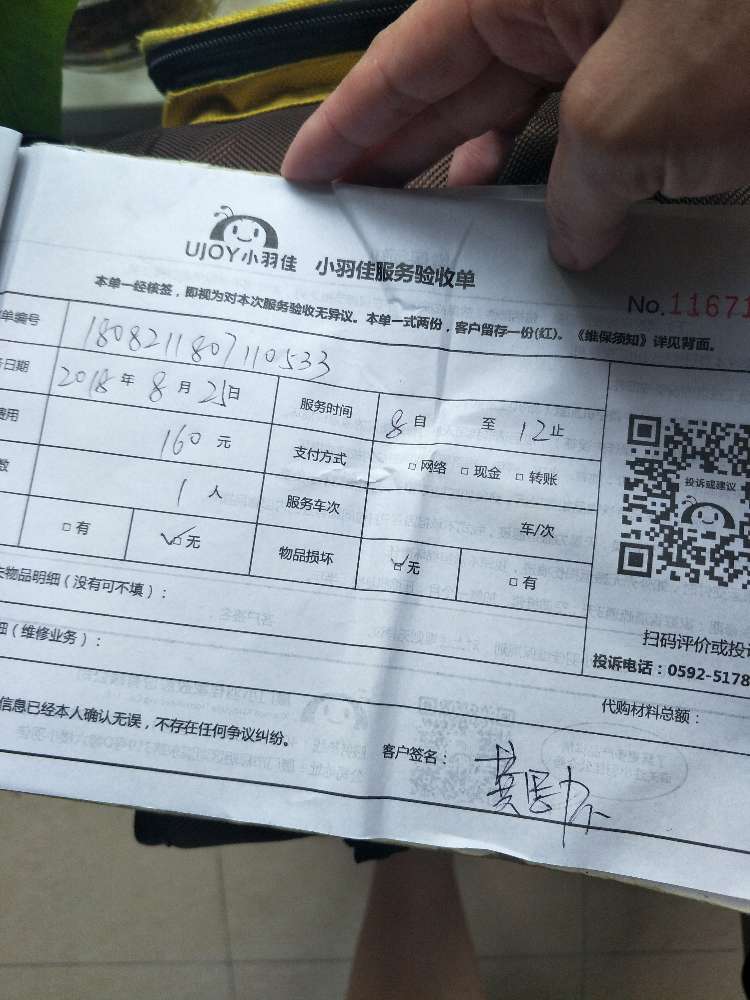 UJOY小羽佳 小羽佳服务验收单
No.11671
本单一经核签，即视为对本次服务验收无异议。本单一式两份，客户留存一份(红)。《维保须知》详见背面。
单编号 1808211807110533
日期 2018年8月25日 服务时间 8自 至 12止
费用 160元 支付方式 □网络 □现金 □转账
数 1人 服务车次 车/次
□有 ☑无 物品损坏 ☑无 □有
投诉或建议
物品明细（没有可不填）：
扫码评价或投诉
细（维修业务）：
投诉电话：0592-5178
代购材料总额：
信息已经本人确认无误，不存在任何争议纠纷。
客户签名：